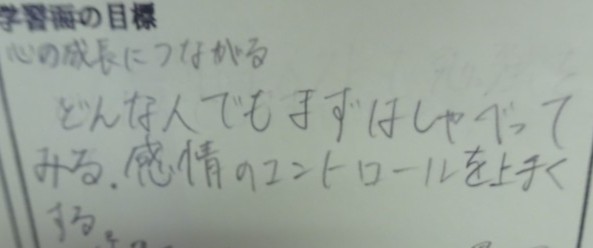 学習面の目標
心の成長につながる
どんな人でもまずはしゃべって
みる。感情のコントロールを上手く
する。